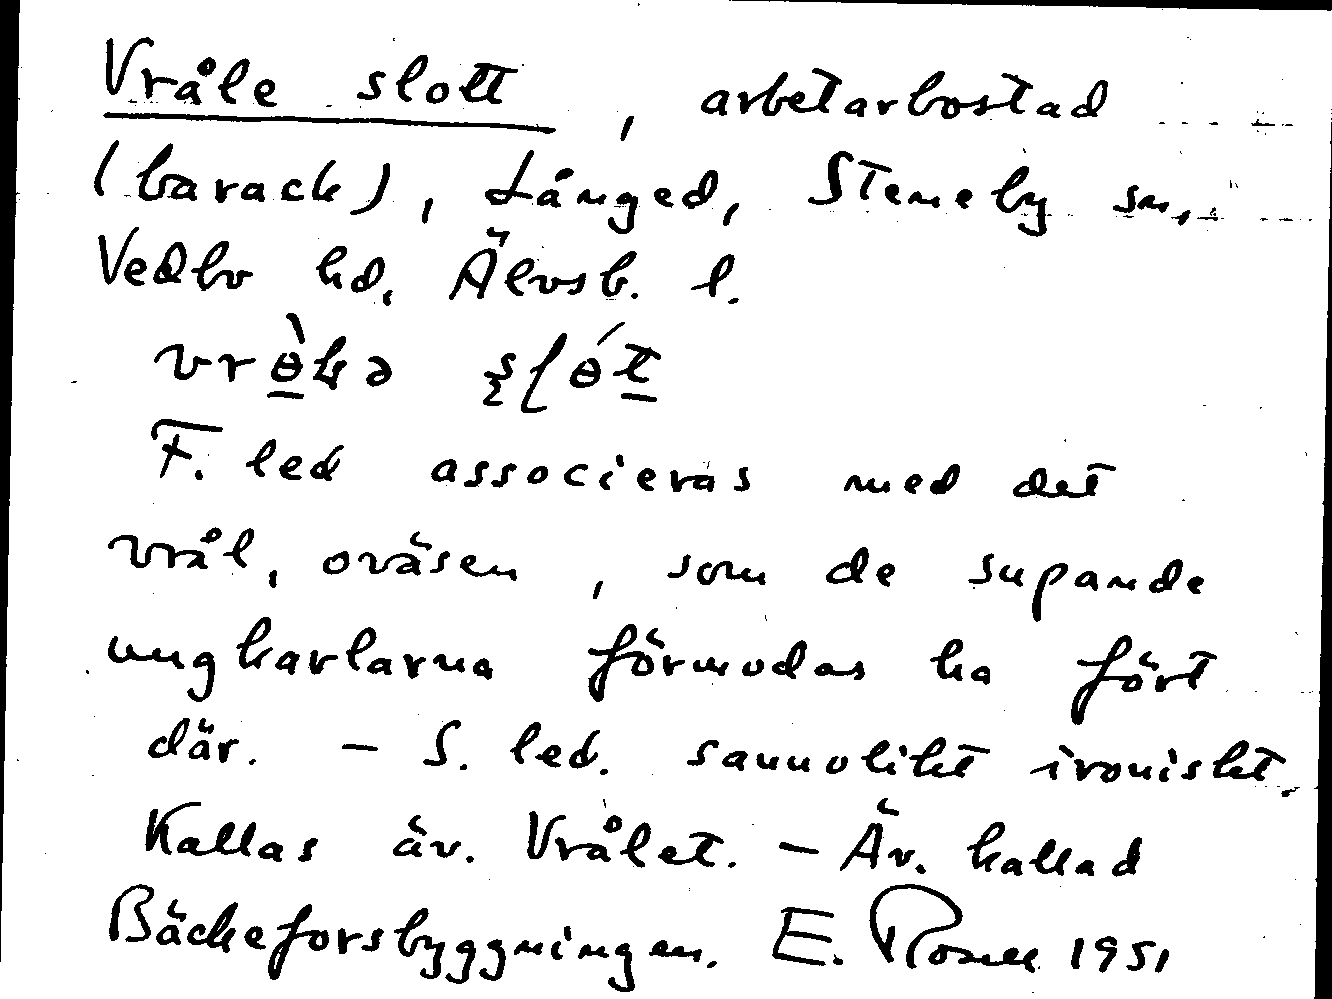 Vråle slott, arbetarbostad
(barack), Långed, Steneby sn,
Vedbo hd, Älvsb. l.
F. led associeras med det
vrål, oväsen, som de supande
ungkarlarna förmodas ha fört
där. – S. led. sannolikt ironiskt.
Kallas äv. Vrålet. – Äv. kallad
Bäckeforsbyggningen. E. Rosell 1951